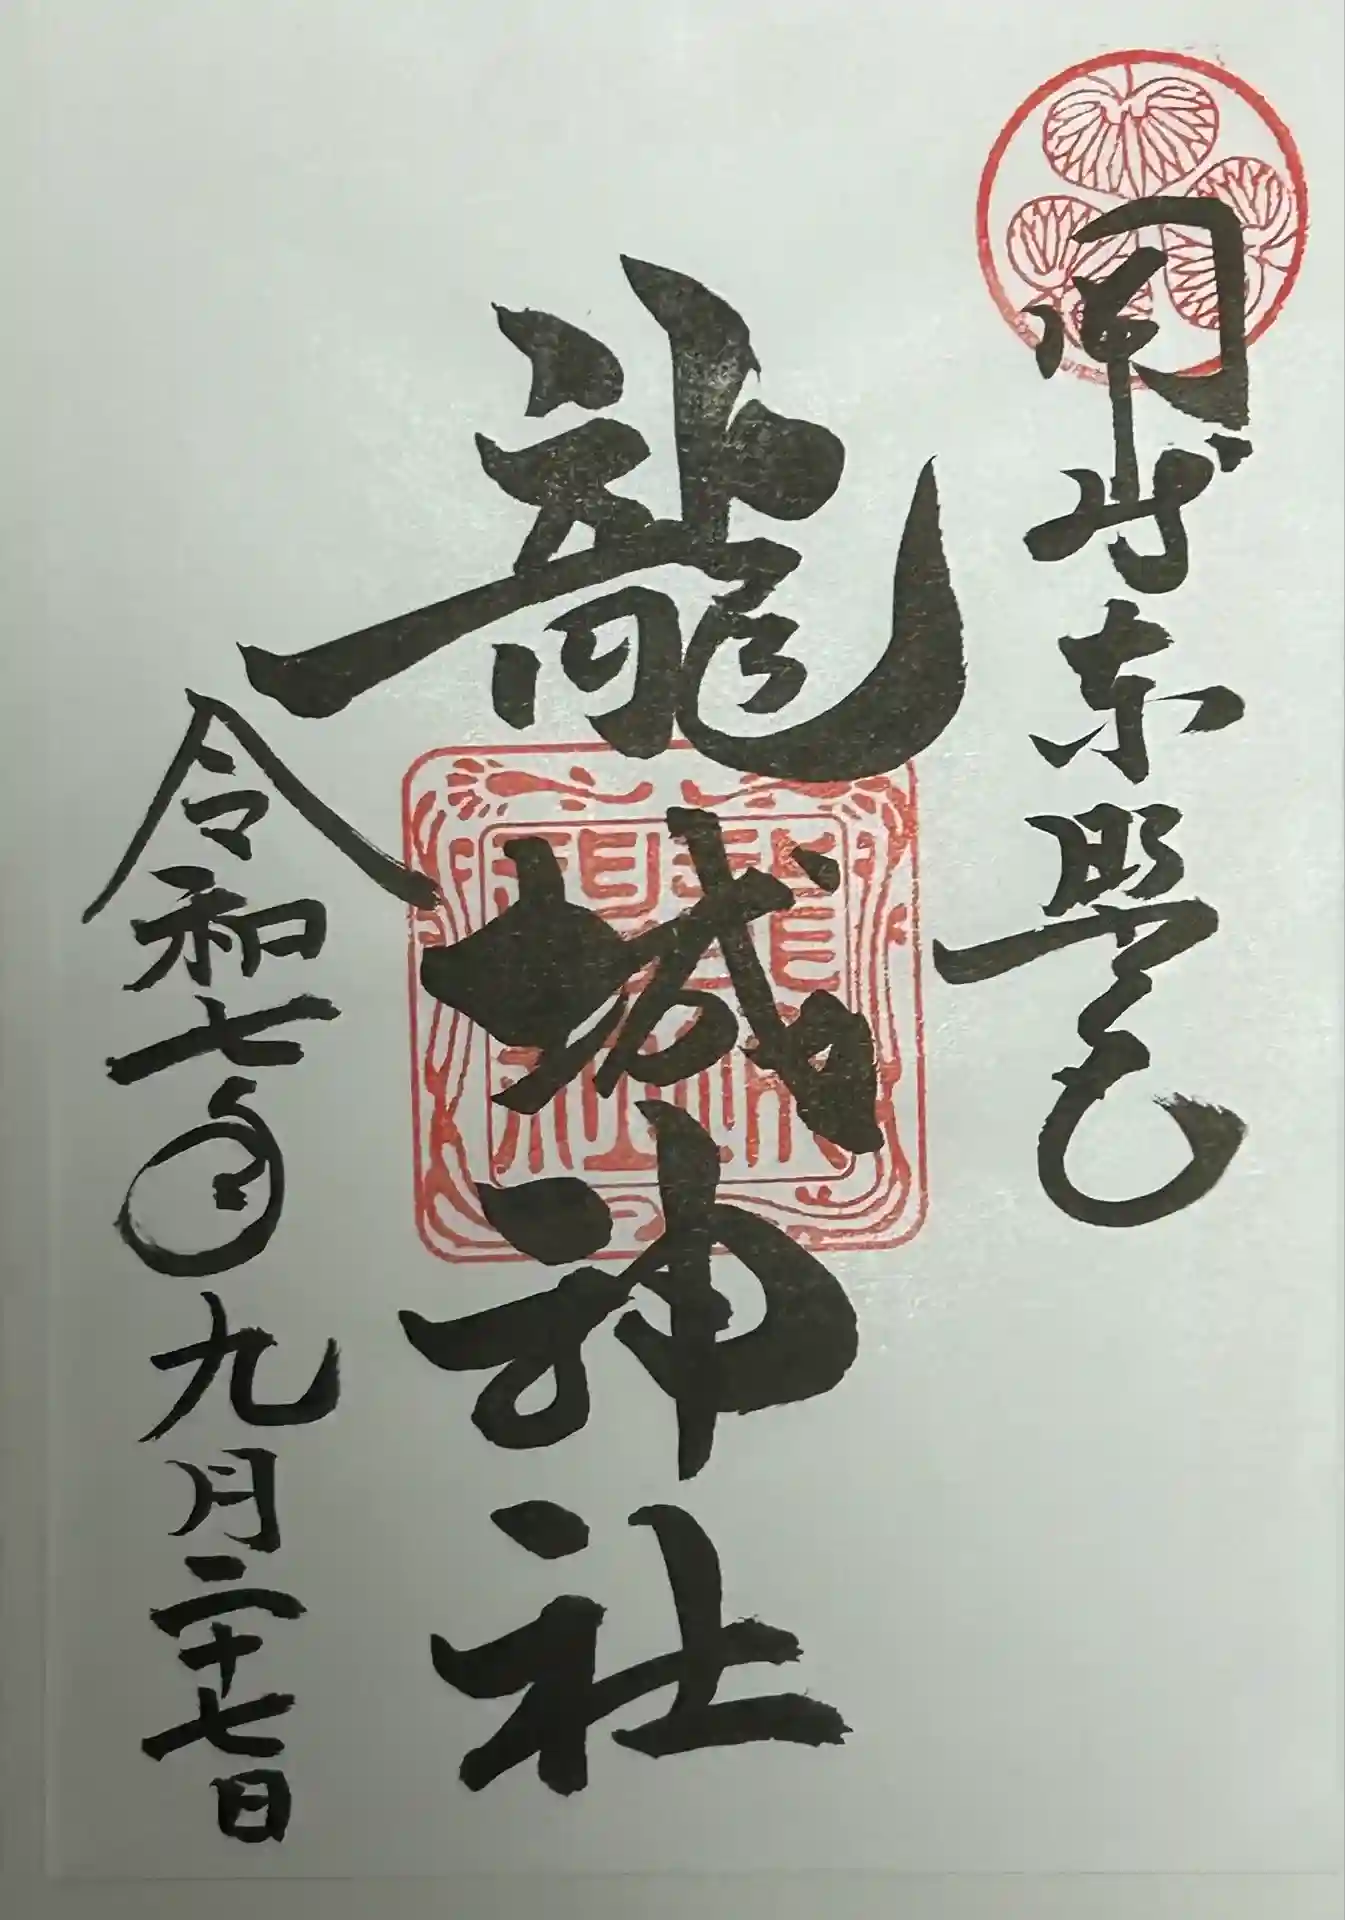 岡崎東照宮
龍城神社
令和七年九月二十七日